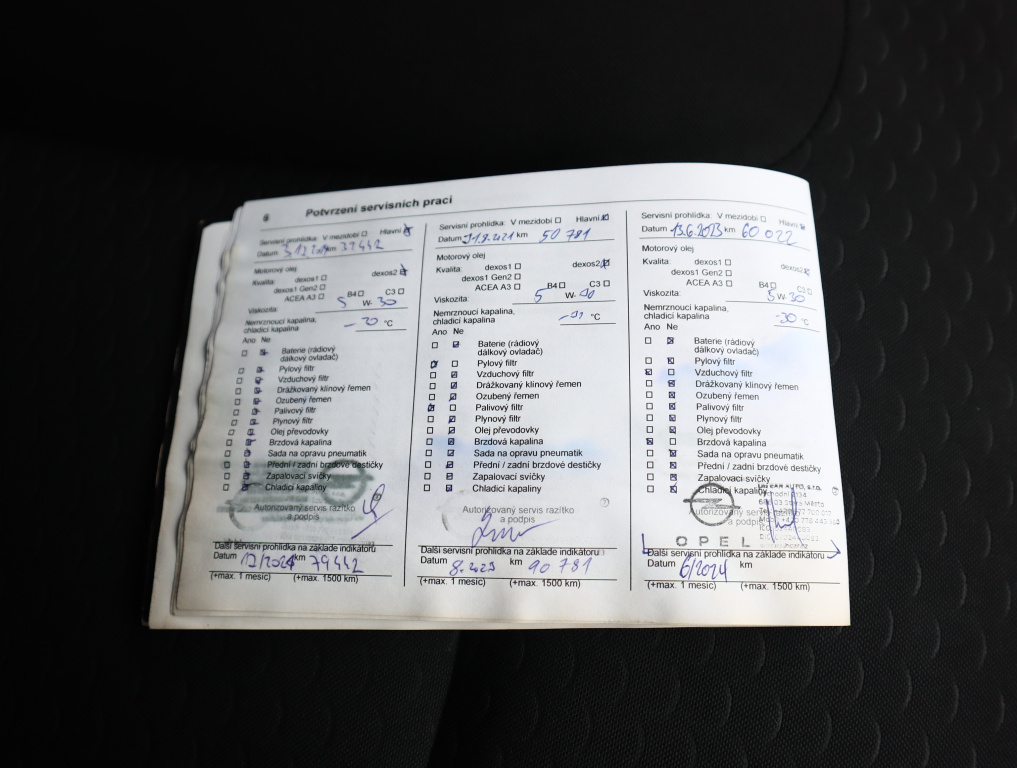 6 Potvrzení servisních prací
Servisní prohlídka: V mezidobí Hlavní
Datum km 39442
Motorový olej
Kvalita: dexos1 dexos2
dexos1 Gen2
ACEA A3 B4 C3
Viskozita: 5 W- 30
Nemrznoucí kapalina,
chladicí kapalina -20 °C
Ano Ne
Baterie (rádiový
dálkový ovladač)
Pylový filtr
Vzduchový filtr
Drážkovaný klínový řemen
Ozubený řemen
Palivový filtr
Plynový filtr
Olej převodovky
Brzdová kapalina
Sada na opravu pneumatik
Přední / zadní brzdové destičky
Zapalovací svíčky
Chladicí kapaliny
Autorizovaný servis razítko
a podpis
Další servisní prohlídka na základě indikátoru
Datum km 79442
(+max. 1 měsíc) (+max. 1500 km)
Servisní prohlídka: V mezidobí Hlavní
Datum km 50 781
Motorový olej
Kvalita: dexos1 dexos2
dexos1 Gen2
ACEA A3 B4 C3
Viskozita: 5 W-
Nemrznoucí kapalina,
chladicí kapalina °C
Ano Ne
Baterie (rádiový
dálkový ovladač)
Pylový filtr
Vzduchový filtr
Drážkovaný klínový řemen
Ozubený řemen
Palivový filtr
Plynový filtr
Olej převodovky
Brzdová kapalina
Sada na opravu pneumatik
Přední / zadní brzdové destičky
Zapalovací svíčky
Chladicí kapaliny
Autorizovaný servis razítko
a podpis
Další servisní prohlídka na základě indikátoru
Datum 8.2023 km 90 781
(+max. 1 měsíc) (+max. 1500 km)
Servisní prohlídka: V mezidobí Hlavní
Datum 13.6.2023 km 60 022
Motorový olej
Kvalita: dexos1 dexos2
dexos1 Gen2
ACEA A3 B4 C3
Viskozita: 5 W- 30
Nemrznoucí kapalina,
chladicí kapalina -30 °C
Ano Ne
Baterie (rádiový
dálkový ovladač)
Pylový filtr
Vzduchový filtr
Drážkovaný klínový řemen
Ozubený řemen
Palivový filtr
Plynový filtr
Olej převodovky
Brzdová kapalina
Sada na opravu pneumatik
Přední / zadní brzdové destičky
Zapalovací svíčky
Chladicí kapaliny
OPEL
Další servisní prohlídka na základě indikátoru
Datum 6/2024 km
(+max. 1 měsíc) (+max. 1500 km)